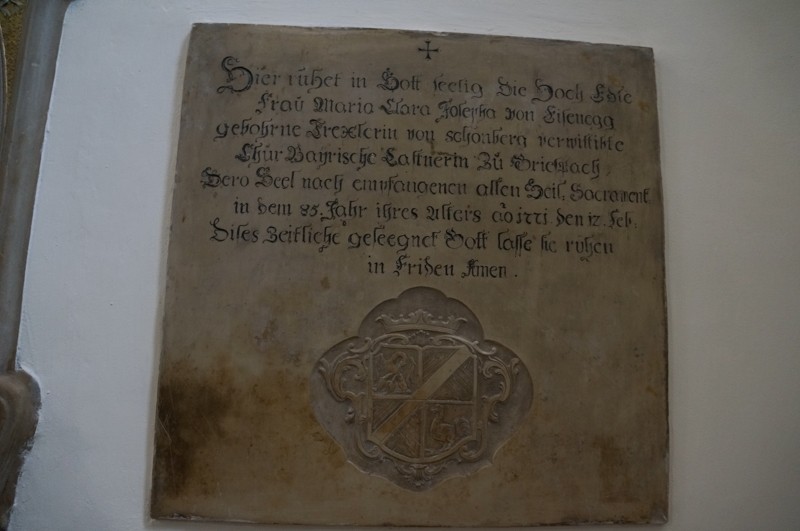 Hier ruhet in Gott seelig Die Hoch Edle
Fraŭ Maria Clara Josepha von Eisenegg
gebohrne Trexlerin von schönberg verwittibte
Chŭr Bayrische Castnerin Zŭ Griesbach,
Dero Seel nach empfangenen allen Heil: Sacrament
in dem 85. Jahr ihres Alters aõ 1771 den 12. Feb:
Dises Zeitliche geseegnet Gott lasse sie ruhen
in Friden Amen.